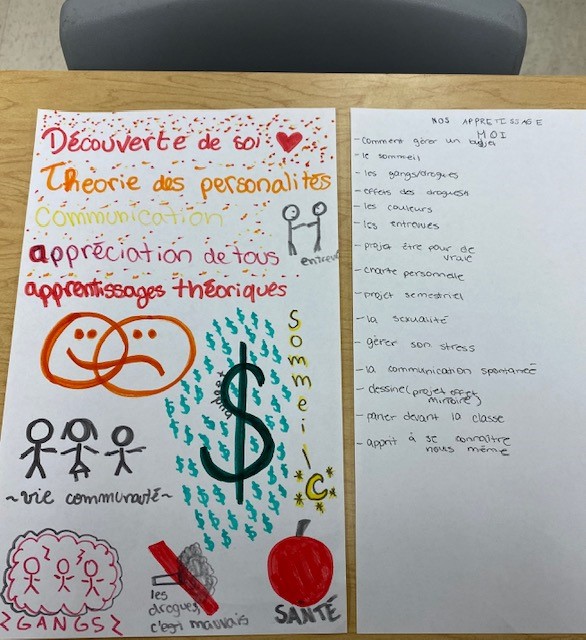 Découverte de soi
Theorie des personalités
Communication
appréciation de tous
apprentissages théoriques
entrevue
Sommeil
budget
$
~vie communauté~
GANGS
les
drogues,
c'est mauvais
SANTÉ
NOS APPRETISSAGE
MOI
-comment gérer un budjet
-le sommeil
-les gangs/drogues
-effets des drogues
-les couleurs
-les entrevues
-projet être pour de
vraie
-charte personnelle
-projet semestriel
-la sexualité
-gérer son stress
-la communication spontaneé
-dessine(projet effet
mirroire)
-parler devant la classe
-apprit à se connaître
nous même